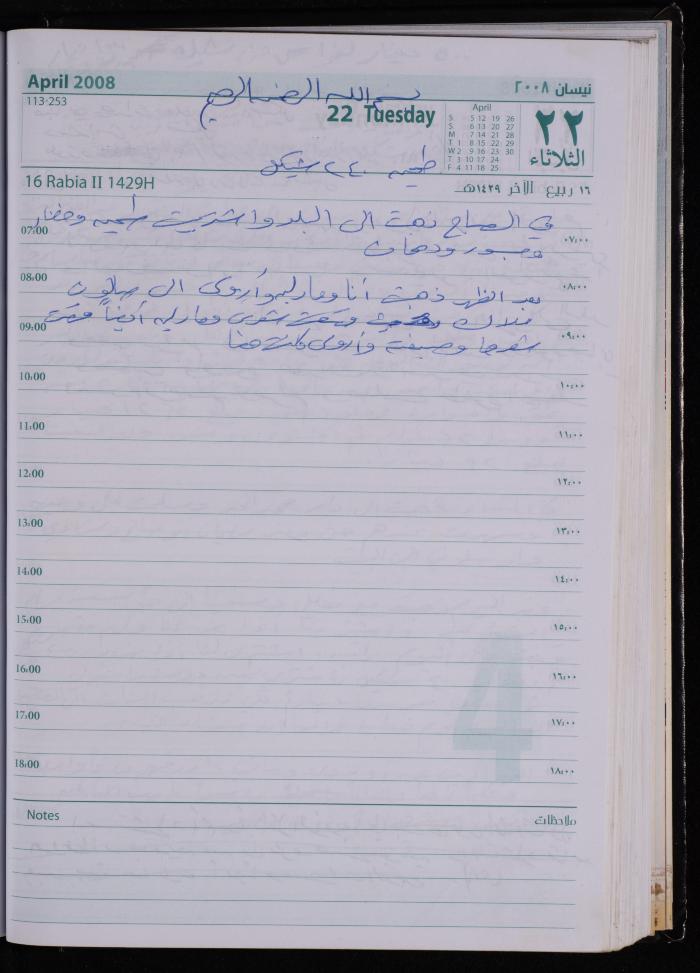 April 2008
نيسان ٢٠٠٨
بسم الله الرحمن الرحيم
113-253
22 Tuesday
April
S 5 12 19 26
S 6 13 20 27
M 7 14 21 28
T 1 8 15 22 29
W 2 9 16 23 30
T 3 10 17 24
F 4 11 18 25
٢٢
الثلاثاء
٢٤٠ شيكل
16 Rabia II 1429H
١٦ ربيع الآخر ١٤٢٩هـ
في الصباح ذهبت الى البلد واشتريت وخضار
07:00 ٠٧:٠٠
08:00 ٠٨:٠٠
بعد الظهر ذهبت أنا وماريه وأروى الى صالون
ملاك وقصت شعري وماريه أيضاً قصت
09:00 ٠٩:٠٠
شعرها وصبغته وأروى كانت هنا
10:00 ١٠:٠٠
11:00 ١١:٠٠
12:00 ١٢:٠٠
13:00 ١٣:٠٠
14:00 ١٤:٠٠
15:00 ١٥:٠٠
16:00 ١٦:٠٠
17:00 ١٧:٠٠
18:00 ١٨:٠٠
4
Notes
ملاحظات